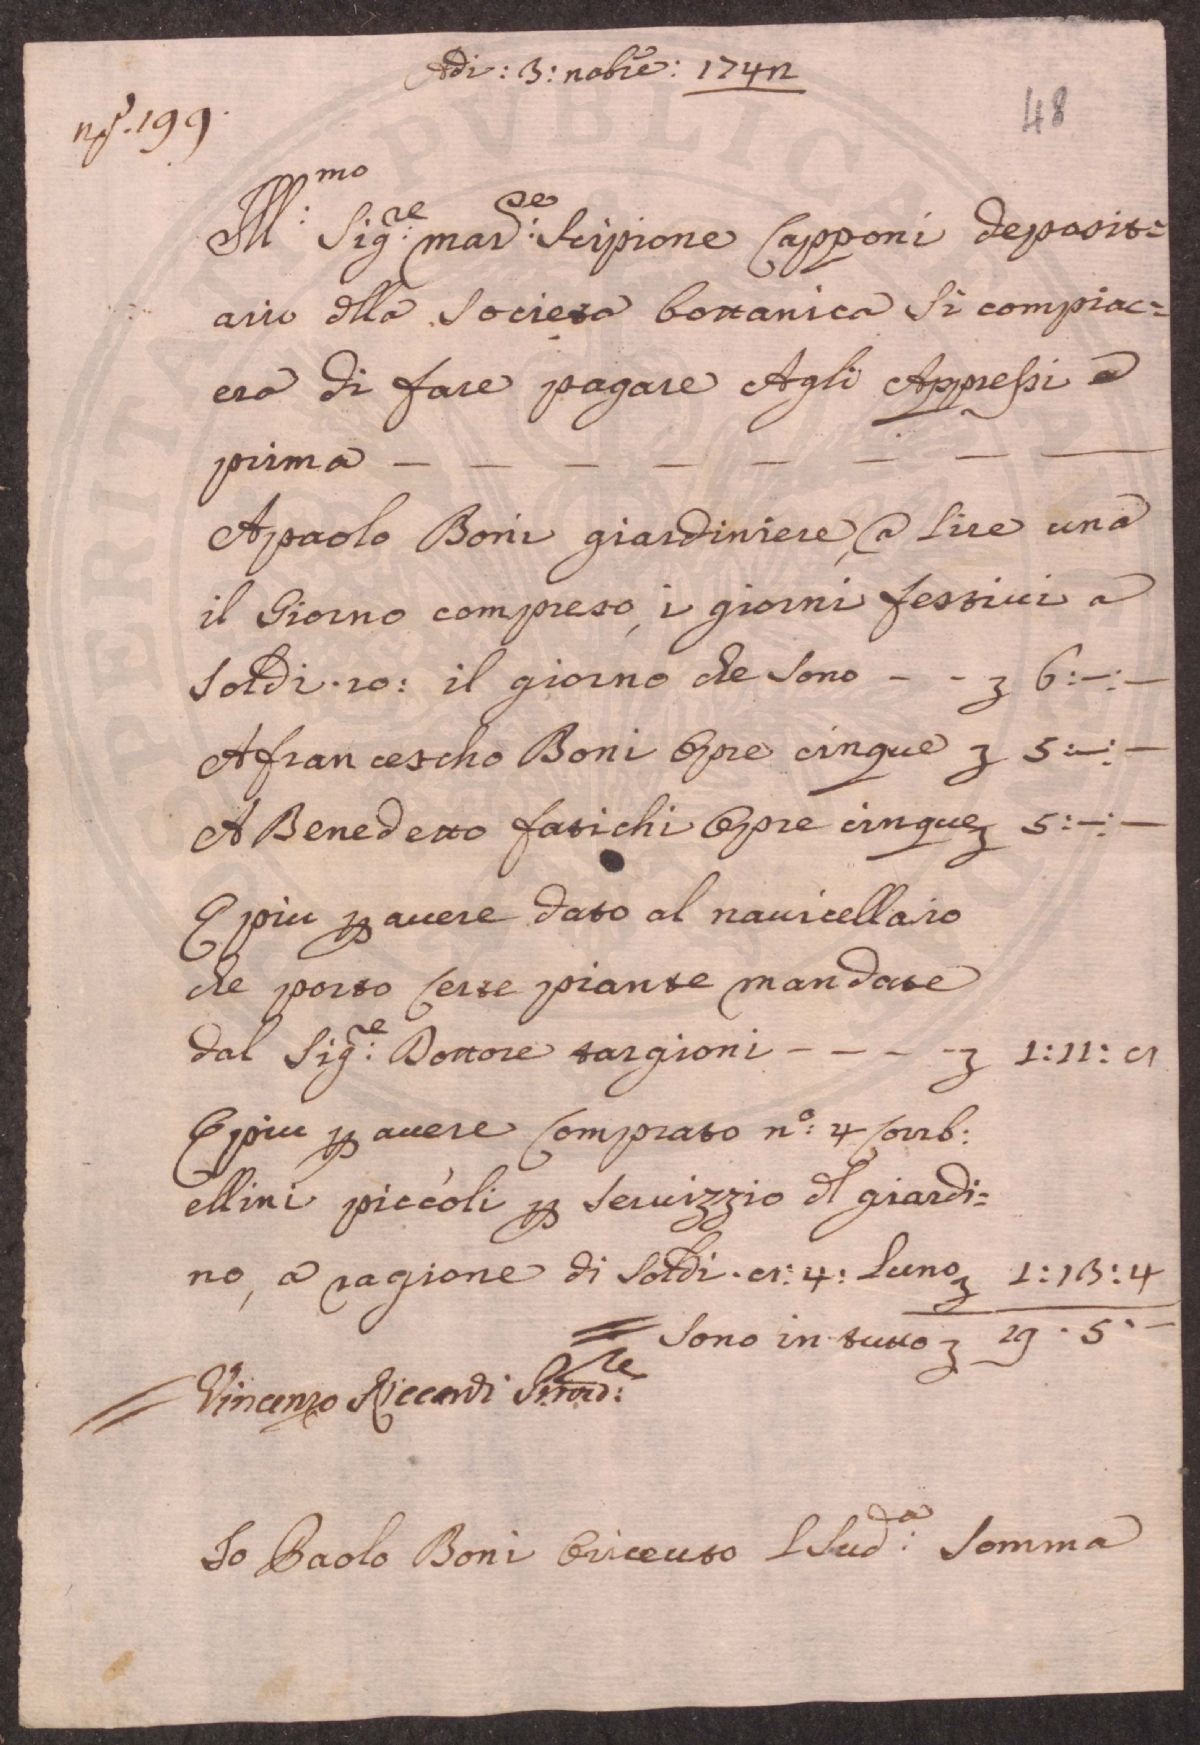 Adi: 3: nobre: 1742
no. 199
48
Ill:mo Sig:re mar:se Scipione Capponi deposit=
ario dlla Societa bottanica si compiac=
era di fare pagare Agli Appressi a
pirma — — — — — — — —
Apaolo Boni giardiniere, a lire una
il Giorno compreso, i giorni festiui a
soldi. 10: il giorno che sono - - 6:—:—
Afrancescho Boni Opre cinque 5:—:—
A Benedetto fatichi Opre cinque 5:—:—
E piu p auere dato al nauicellaio
che porto certe piante mandate
dal Sig:re Dottore targioni - - - - 1:11: 8
E piu p auere Comprato no: 4 Corb:
ellini piccoli p seruizzio dl giardi=
no, a ragione di soldi. 8: 4: luno 1: 13: 4
Sono in tutto 19. 5. —
Vincenzo Riccardi
Io Paolo Boni Oriceuto L Sud:a Somma
PVBLICA